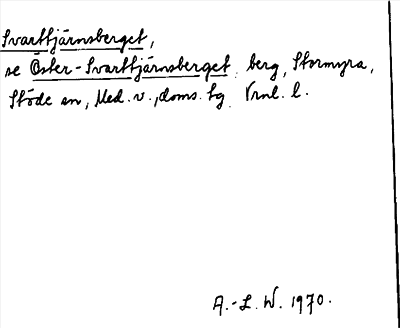 Svarttjärnsberget,
se Öster-Svarttjärnsberget, berg, Stormyra,
Stöde sn, Med. v., doms. tg Vrnl. l.
A.-L. W. 1970.